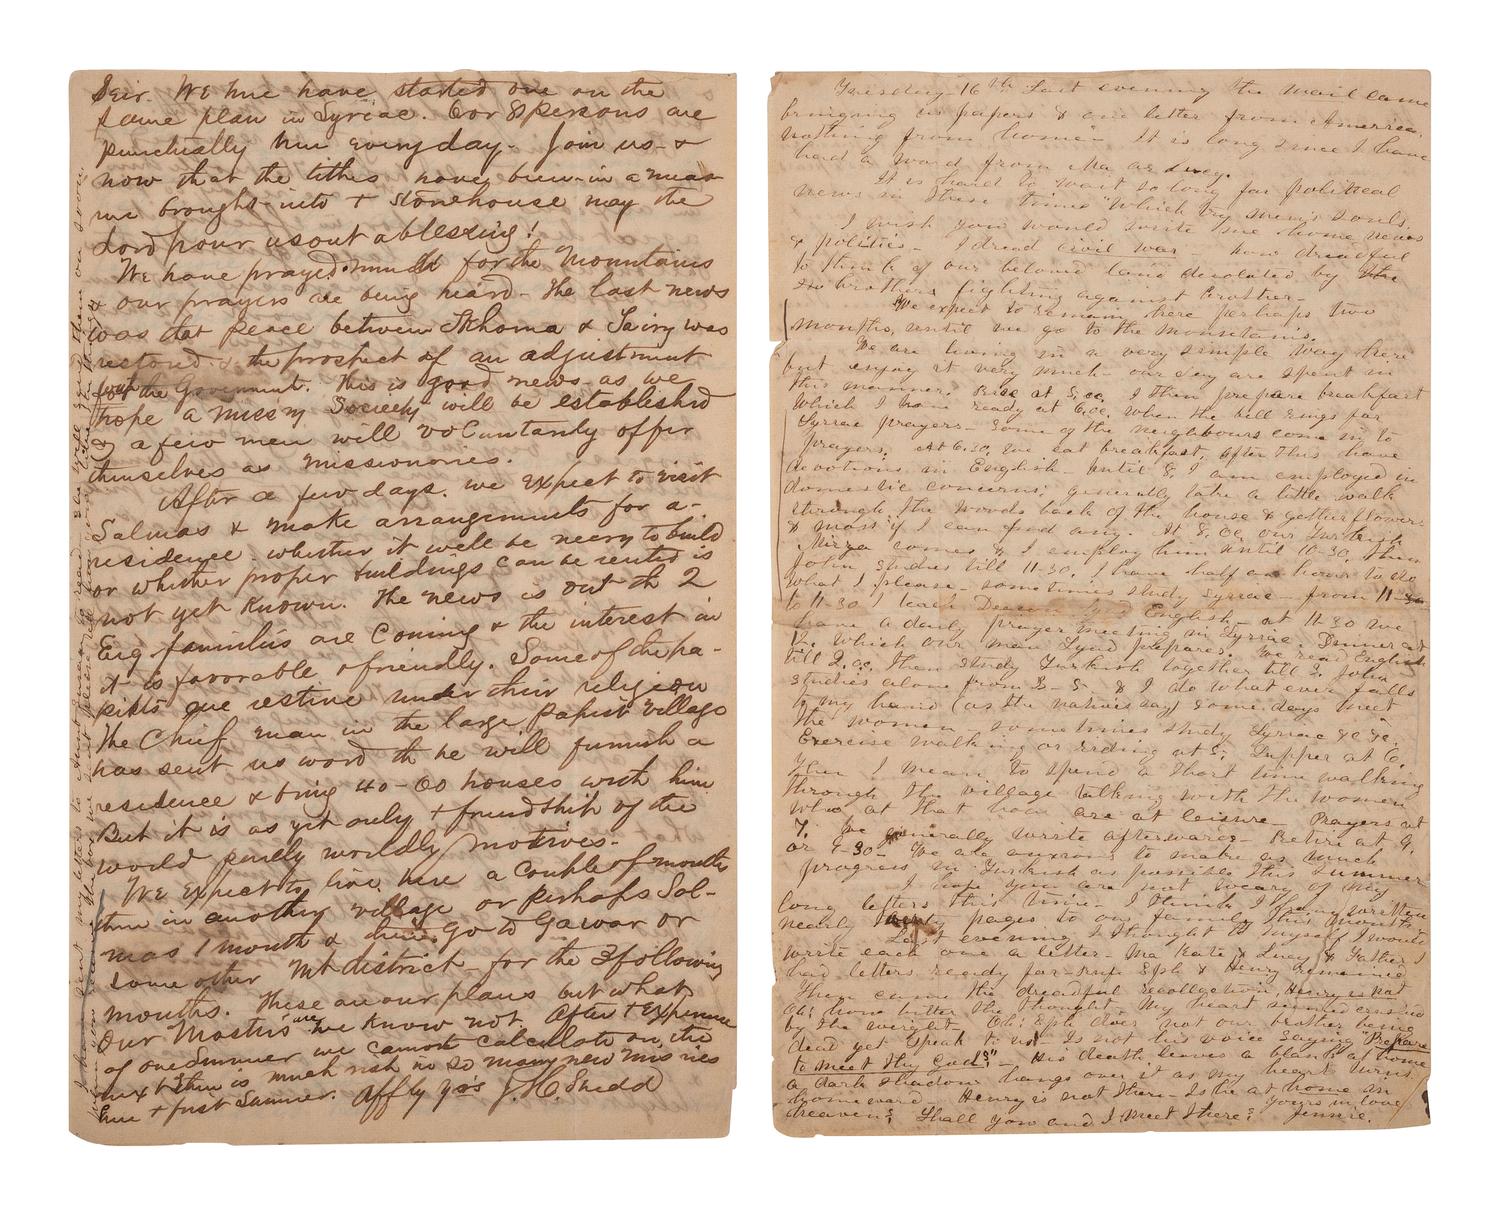 Seir. We here have started one on the
same plan in Syriac. Our 8 persons are
punctually here every day. Join us &
now that the tithes have been in a meas
ure brought into + storehouse may the
Lord pour us out a blessing!
We have prayed much for the Mountains
& our prayers are being heard. The last news
was that peace between & was
& the prospect of an adjustment
with the Goverment. This is good news as we
hope a missy Society will be established
& a few men will voluntarily offer
themselves as missionaries.
After a few days. we expect to visit
Salmas & make arrangements for a
residence. whether it will be necry to build
or whether proper buildings can be rented is
not yet known. The news is out th 2
Eng. families are coming & the interest in
it is favorable & friendly. Some of the pa-
pists are restive under their religion
The Chief man in the large papist village
has sent us word th he will furnish a
residence & bring 40- houses with him
But it is as yet only + friendship of the
world purely worldly motives.
We expect to live here a couple of months
then in another village or perhaps Sal-
mas 1 month & then go to Gawar or
some other Mt district for the 3 following
months. These are our plans but what
Our Master's are we know not. After + experience
of one summer we cannot calculate on the
next. There is much risk in so many new miss ries
here + first Summer. Affly yrs J. H. Shedd
I have sent my letters to Aunt
when you
Tuesday 16th Last evening the mail came
bringing us papers & one letter from America.
nothing from home. It is long since I have
had a word from Ma or Lucy.
It is hard to wait so long for political
news in these times "which try men's souls.
I wish you would write me some news
& politics. I dread civil war. how dreadful
to think of our beloved land desolated by the
brothers fighting against brother.
We expect to remain here perhaps two
months, until we go to the Mountains.
We are living in a very simple way here
but enjoy it very much. our day are spent in
this manner. Rise at 5. oc. I then prepare breakfast
which I have ready at 6. oc. when the bell rings for
Syriac prayers. Some of the neighbours come in to
prayers. At 6.30. we eat breakfast, after this have
devotions in English. Until 8, I am employed in
domestic concerns; generally take a little walk
through the woods back of the house & gether flowers
& moss if I can find any. At 8. oc. our Turkish
Mirza comes & I employ him until 10-30. then
John studies till 11-30. I have half an hour to do
what I please. sometimes study Syriac. from 11
to 11-30 I teach Deacon English. at 11 30 we
have a daily prayer meeting in Syriac. Dinner at
12. which our man prepares. We read English
till 2. oc. Then study Turkish together till 3. John
studies alone from 3-5. & I do what ever falls
to my hand (as the natives say) some days meet
the women sometimes study Syriac &c &c.
Exercise walking or riding at 5. Supper at 6.
then I mean to spend a short time walking
through the village talking with the women
who at that hour are at leisure. Prayers at
7. We generally write afterwards. Retire at 9.
or 9-30. We are anxious to make as much
progress in Turkish as possible this Summer
I hope you are not weary of my
long letters this time. I think I have written
nearly pages to our family this month.
Last evening I thought to myself I would
write each one a letter. Ma Kate & Lucy & Father I
had letters ready for. Eph & Henry remained
Then came the dreadful recollection, Henry is not
Oh! how bitter the thought. My heart seemed crushed
by the weight. Oh! Eph does not our brother being
dead yet speak to us? Is not his voice saying "Prepare
to meet thy God?" His death leaves a blank at home
a dark shadow hangs over it as my heart turns
homeward. Henry is not there. Is he at home in
heaven? Shall you and I meet there? Yours in love
Jennie.